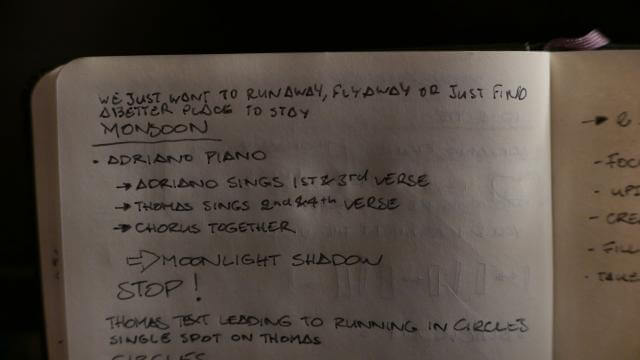 WE JUST WANT TO RUNAWAY, FLYAWAY OR JUST FIND
A BETTER PLACE TO STAY
MONSOON
• ADRIANO PIANO
→ ADRIANO SINGS 1ST & 3rd VERSE
→ THOMAS SINGS 2nd & 4th VERSE
→ CHORUS TOGETHER
⇒ MOONLIGHT SHADOW
STOP!
THOMAS TEXT LEADING TO RUNNING IN CIRCLES
SINGLE SPOT ON THOMAS
CIRCLES